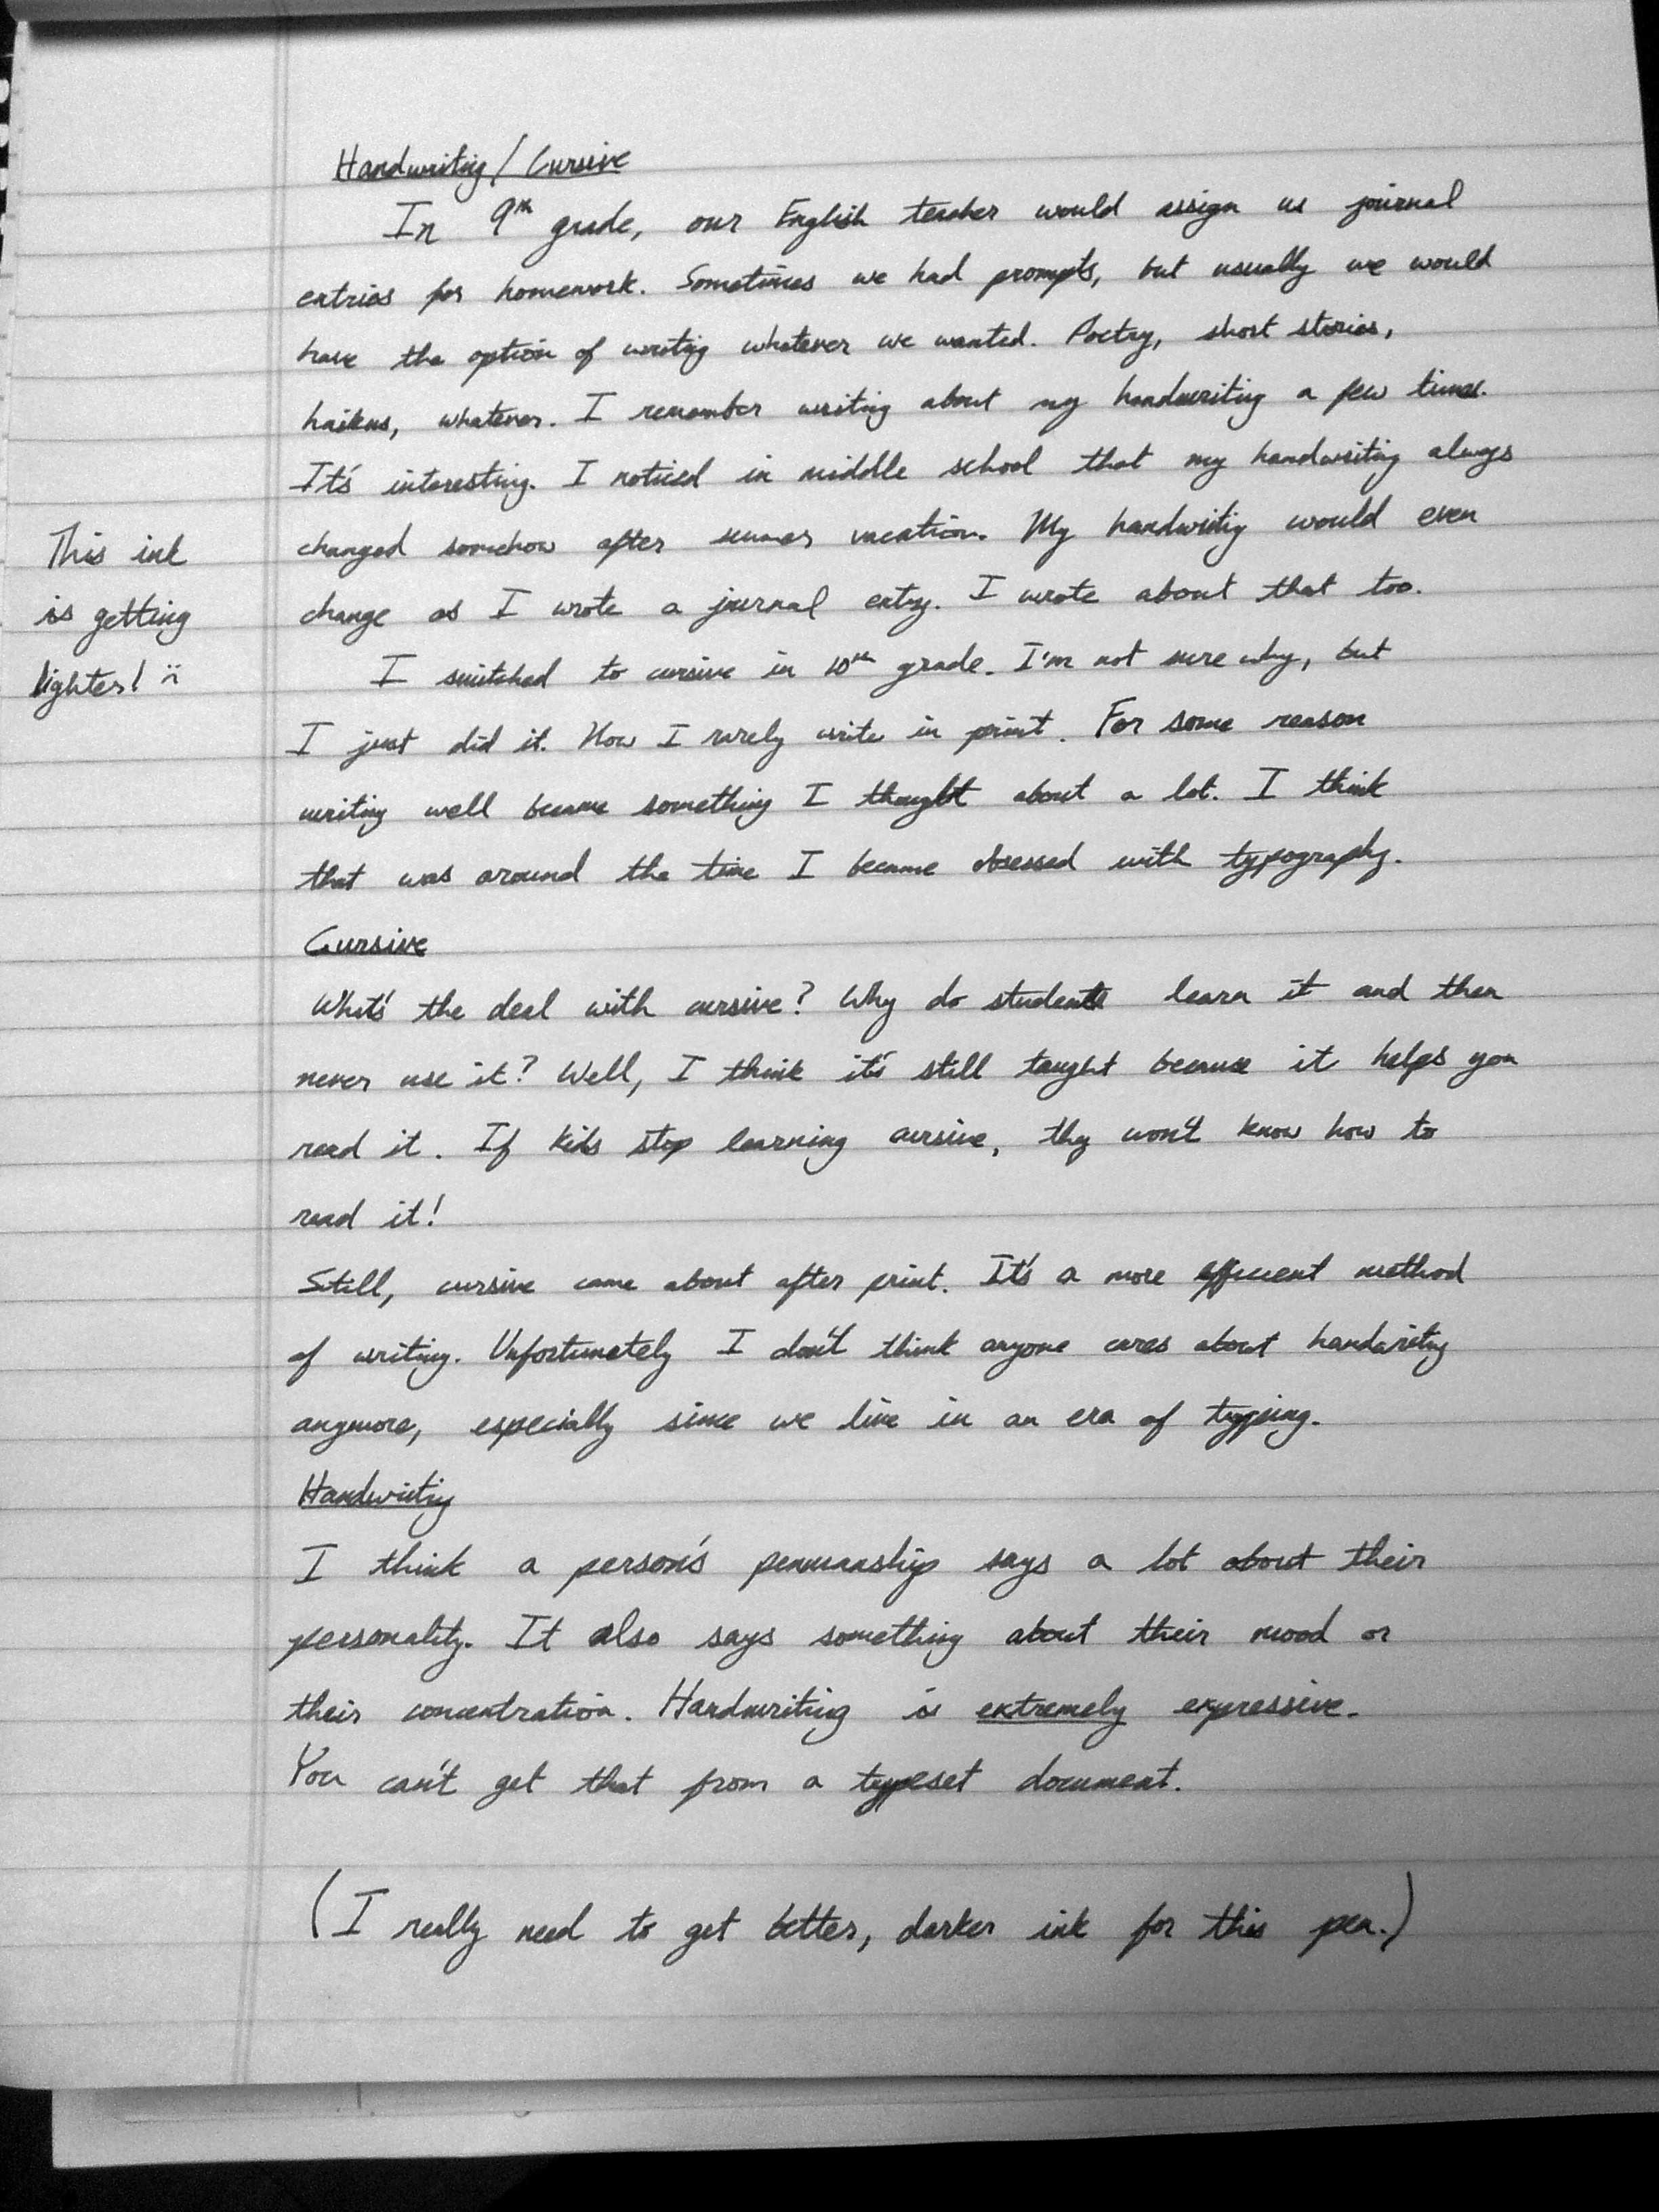 Handwriting / Cursive
In 9th grade, our English teacher would assign us journal
entries for homework. Sometimes we had prompts, but usually we would
have the option of writing whatever we wanted. Poetry, short stories,
haikus, whatever. I remember writing about my handwriting a few times.
It's interesting. I noticed in middle school that my handwriting always
changed somehow after summer vacation. My handwriting would even
change as I wrote a journal entry. I wrote about that too.
This ink
is getting
lighter! :(
I switched to cursive in 10th grade. I'm not sure why, but
I just did it. Now I rarely write in print. For some reason
writing well became something I thought about a lot. I think
that was around the time I became obsessed with typography.
Cursive
What's the deal with cursive? Why do students learn it and then
never use it? Well, I think it's still taught because it helps you
read it. If kids stop learning cursive, they won't know how to
read it!
Still, cursive came about after print. It's a more efficient method
of writing. Unfortunately I don't think anyone cares about handwriting
anymore, especially since we live in an era of typing.
Handwriting
I think a person's penmanship says a lot about their
personality. It also says something about their mood or
their concentration. Handwriting is extremely expressive.
You can't get that from a typeset document.
(I really need to get better, darker ink for this pen.)